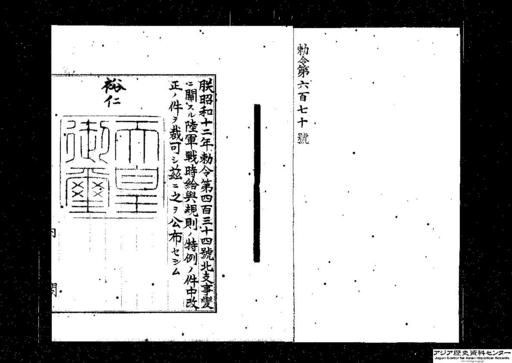 勅令第六百七十號
朕昭和十二年勅令第四百三十四號北支事變
ニ關スル陸軍戰時給與規則ノ特例ノ件中改
正ノ件ヲ裁可シ茲ニ之ヲ公布セシム
裕仁
天皇
御璽
内閣
アジア歴史資料センター
Japan Center for Asian Historical Records